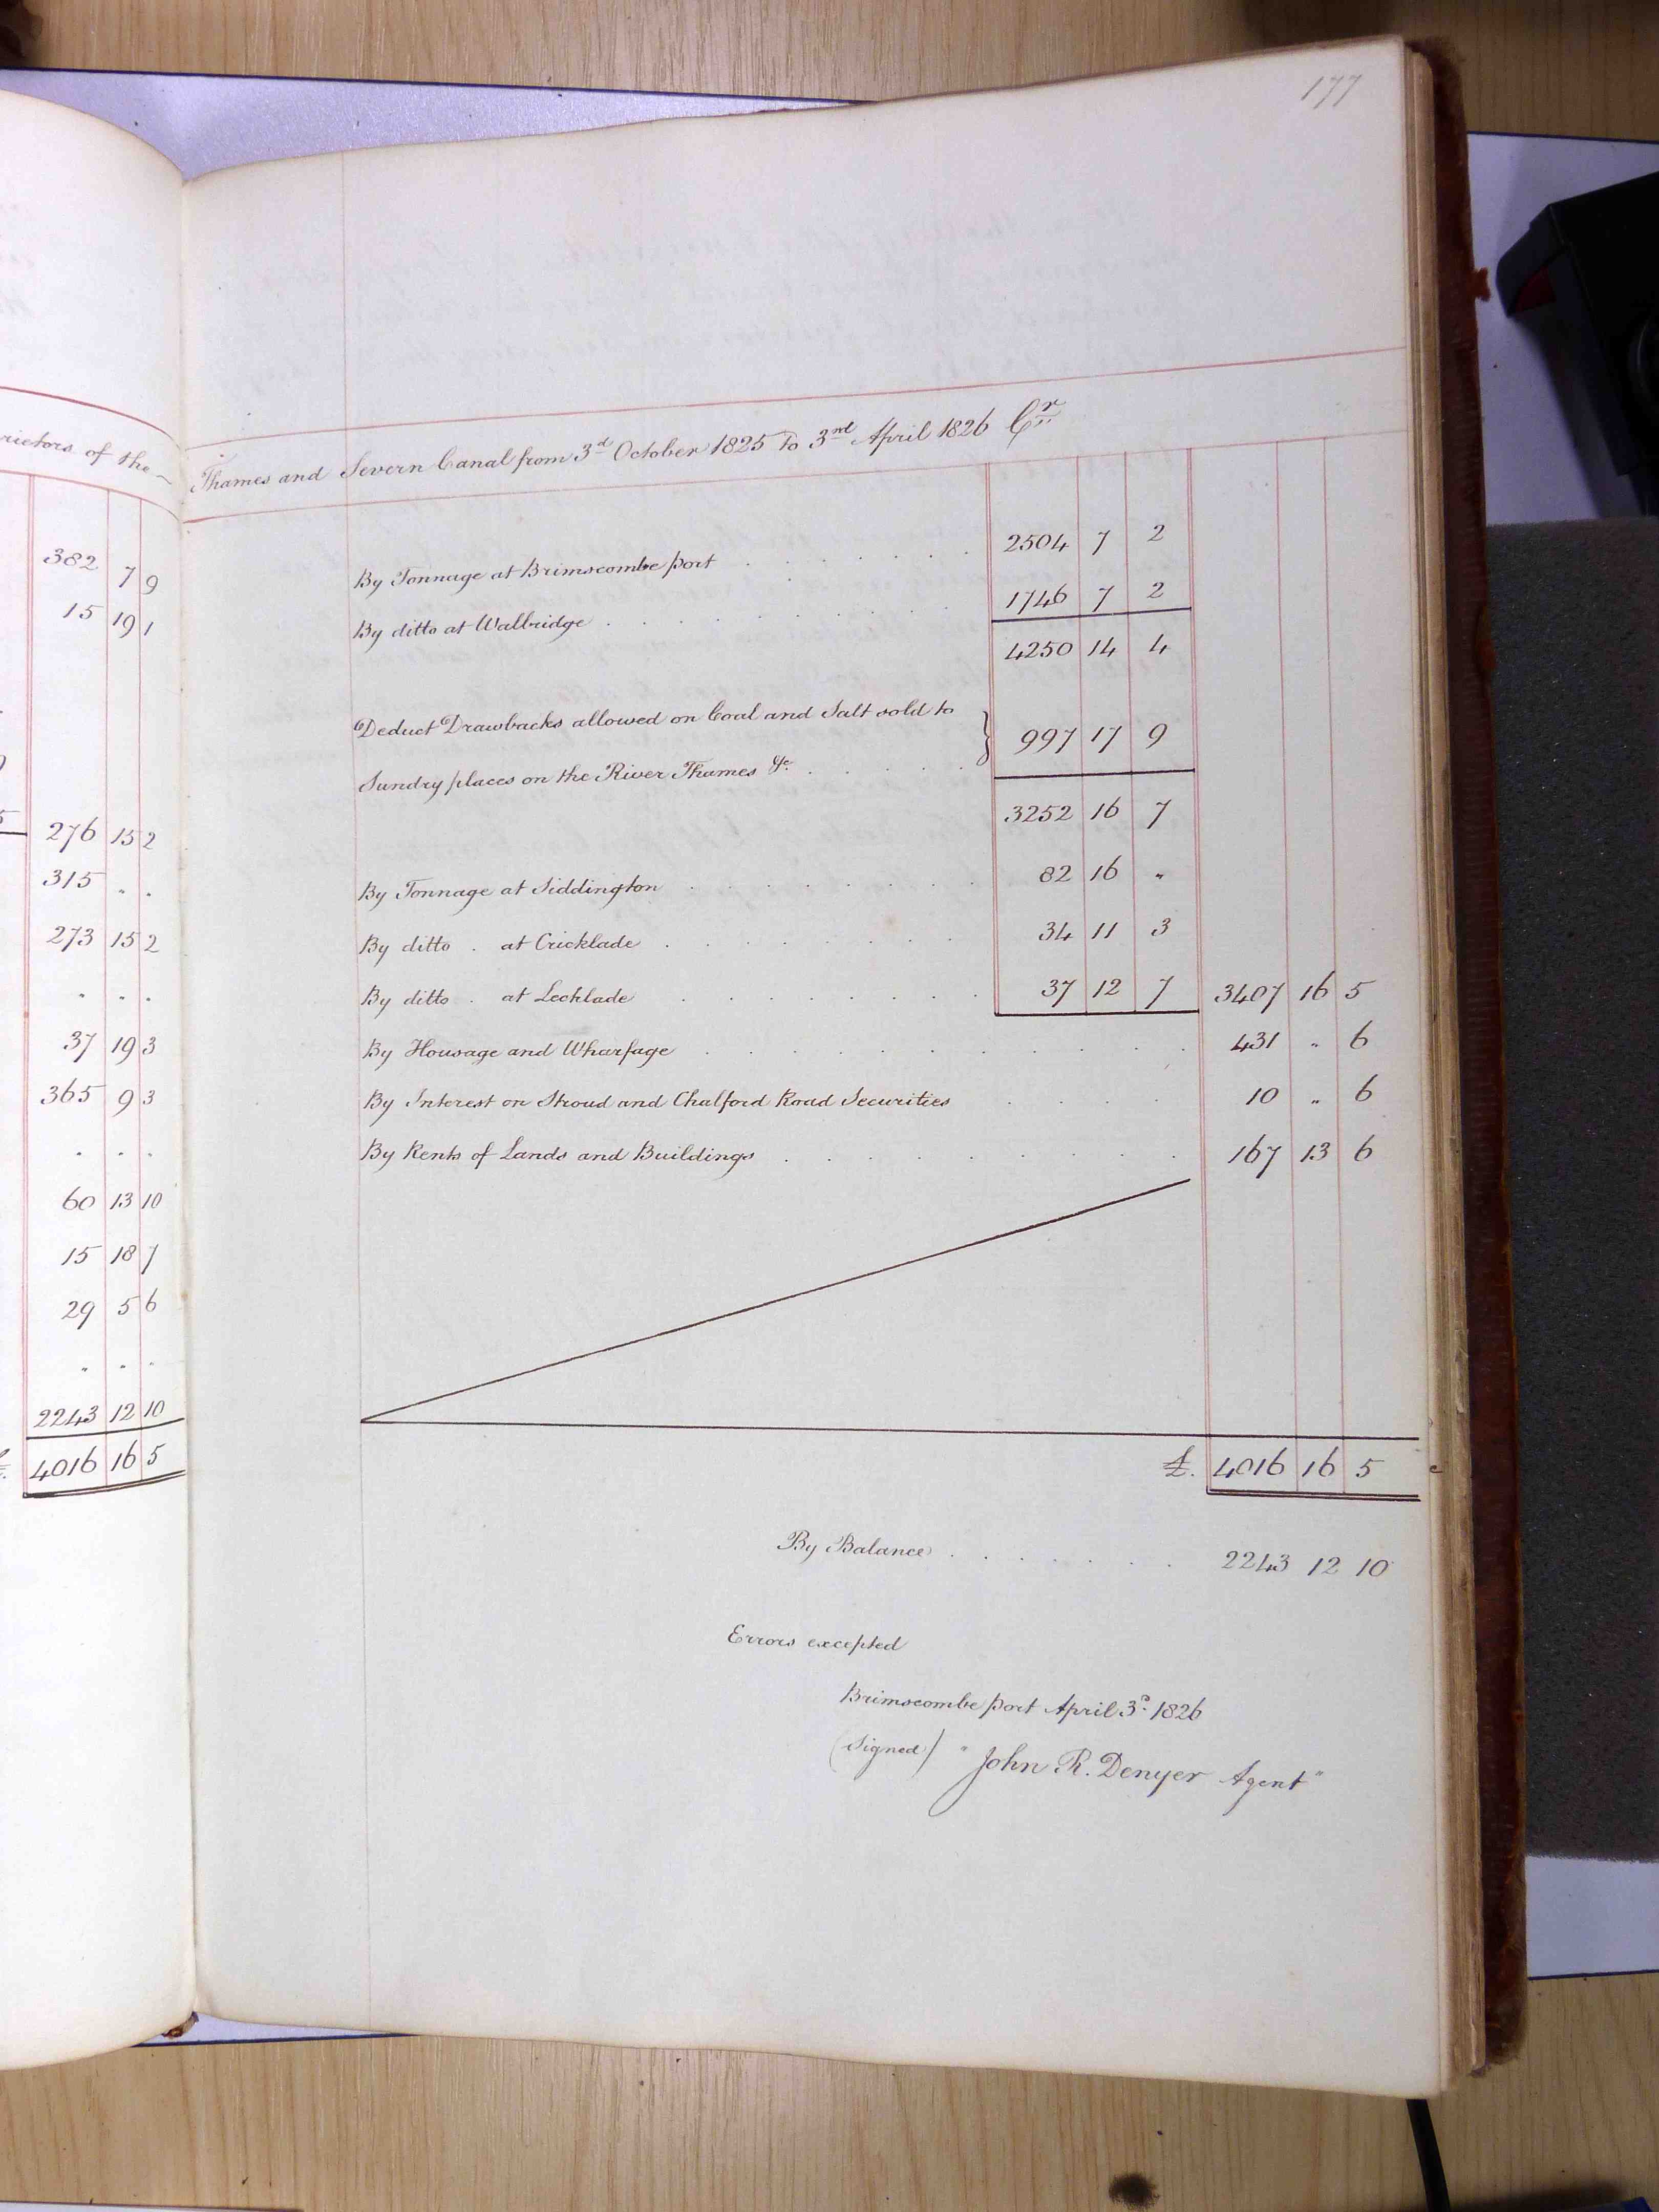 177
rietors of the
382 7 9
15 19 1
276 15 2
315 " "
273 15 2
" " "
37 19 3
365 9 3
" " "
60 13 10
15 18 7
29 5 6
" " "
2243 12 10
4016 16 5
Thames and Severn Canal from 3d October 1825 to 3rd April 1826 Cr
By Tonnage at Brimscombe port . . . . . 2504 7 2
By ditto at Wallbridge . . . . . . . 1746 7 2
4250 14 4
Deduct Drawbacks allowed on Coal and Salt sold to
Sundry places on the River Thames &c. . . . . } 997 17 9
3252 16 7
By Tonnage at Siddington . . . . . . . 82 16 "
By ditto . at Cricklade . . . . . . . 34 11 3
By ditto . at Lechlade . . . . . . . 37 12 7 3407 16 5
By Housage and Wharfage . . . . . . . . . 431 " 6
By Interest on Stroud and Chalford Road Securities . . . . 10 " 6
By Rents of Lands and Buildings . . . . . . . . 167 13 6
£. 4016 16 5
By Balance . . . . . . . 2243 12 10
Errors excepted
Brimscombe port April 3d. 1826
(Signed) "John R. Denyer Agent"